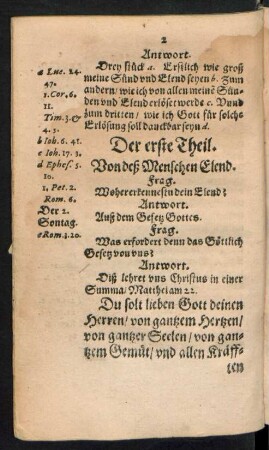 2
Antwort.
Drey stück a. Erstlich wie groß
meine Sünd vnd Elend seyen b. Zum
andern / wie ich von allen meinē Sün-
den vnd Elend erlöset werde c. Vund
zum dritten / wie ich Gott für solche
Erlösung soll danckbar seyn d.
a Luc. 24.
47.
1. Cor. 6.
11.
Tim. 3. &
4. 5.
b Ioh. 6. 41.
c Ioh. 17. 3.
d Ephes. 5.
10.
1. Pet. 2.
Rom. 6.
Der 2.
Sontag.
e Rom. 3. 20.
Der erste Theil.
Von deß Menschen Elend.
Frag.
Woher erkennestu dein Elend?
Antwort.
Auß dem Gesetz Gottes.
Frag.
Was erfordert denn das Göttlich
Gesetz von vns?
Antwort.
Diß lehret vns Christus in einer
Summa / Matthei am 22.
Du solt lieben Gott deinen
Herren / von gantzem Hertzen /
von gantzer Seelen / von gan-
tzem Gemüt / vnd allen Kräff-
ten